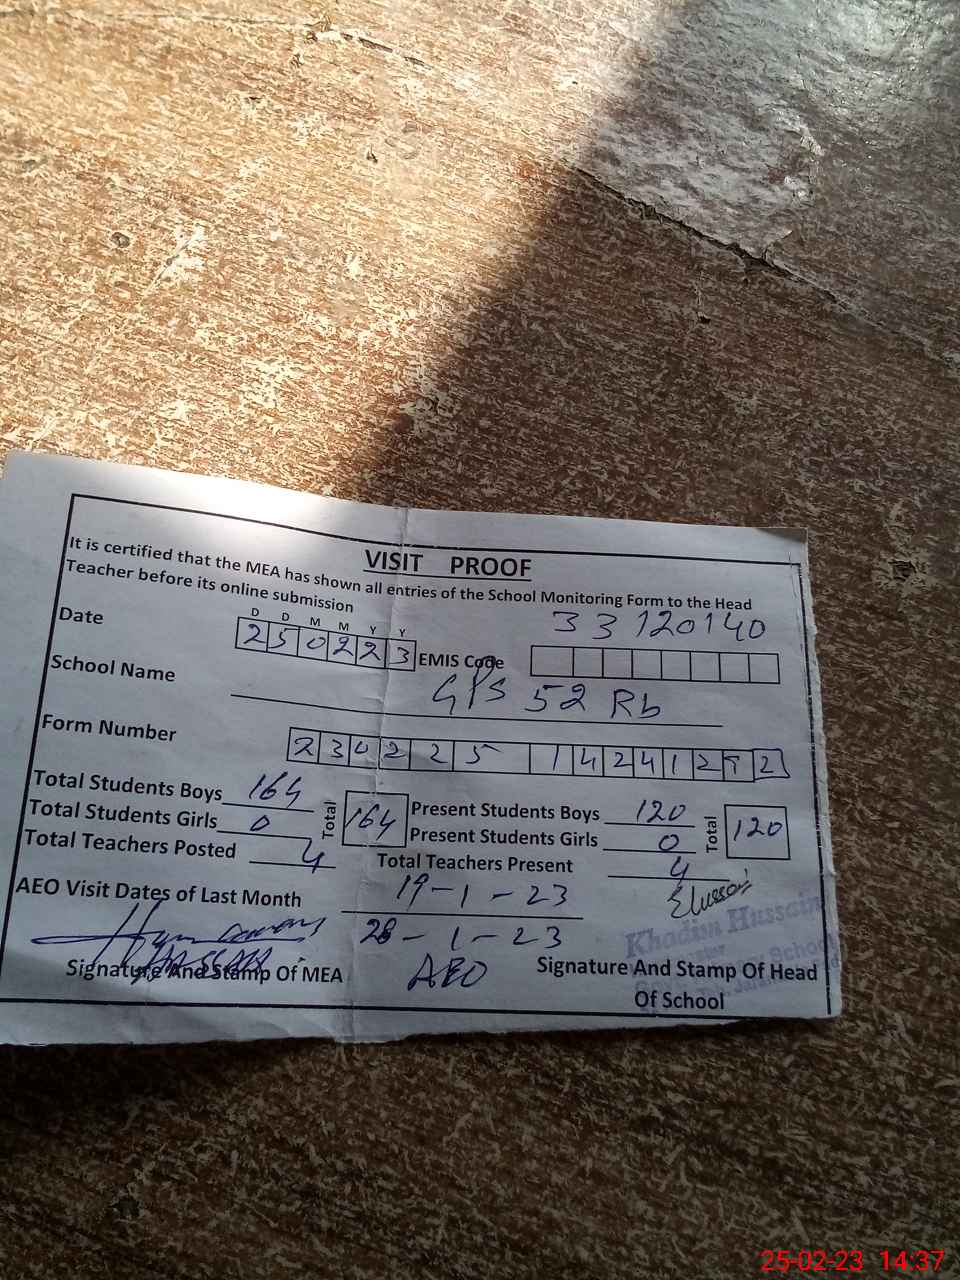 VISIT PROOF
It is certified that the MEA has shown all entries of the School Monitoring Form to the Head
Teacher before its online submission
D D M M Y Y
Date 2 5 0 2 2 3 EMIS Code 33120140
School Name GPS 52 Rb
Form Number 2 3 0 2 2 5 1 4 2 4 1 2 2
Total Students Boys 164 Total 164 Present Students Boys 120 Total 120
Total Students Girls 0 Present Students Girls 0
Total Teachers Posted 4 Total Teachers Present 4
AEO Visit Dates of Last Month 19-1-23
28-1-23
Khadim Hussain
Signature And Stamp Of MEA AEO Signature And Stamp Of Head
Of School
25-02-23 14:37